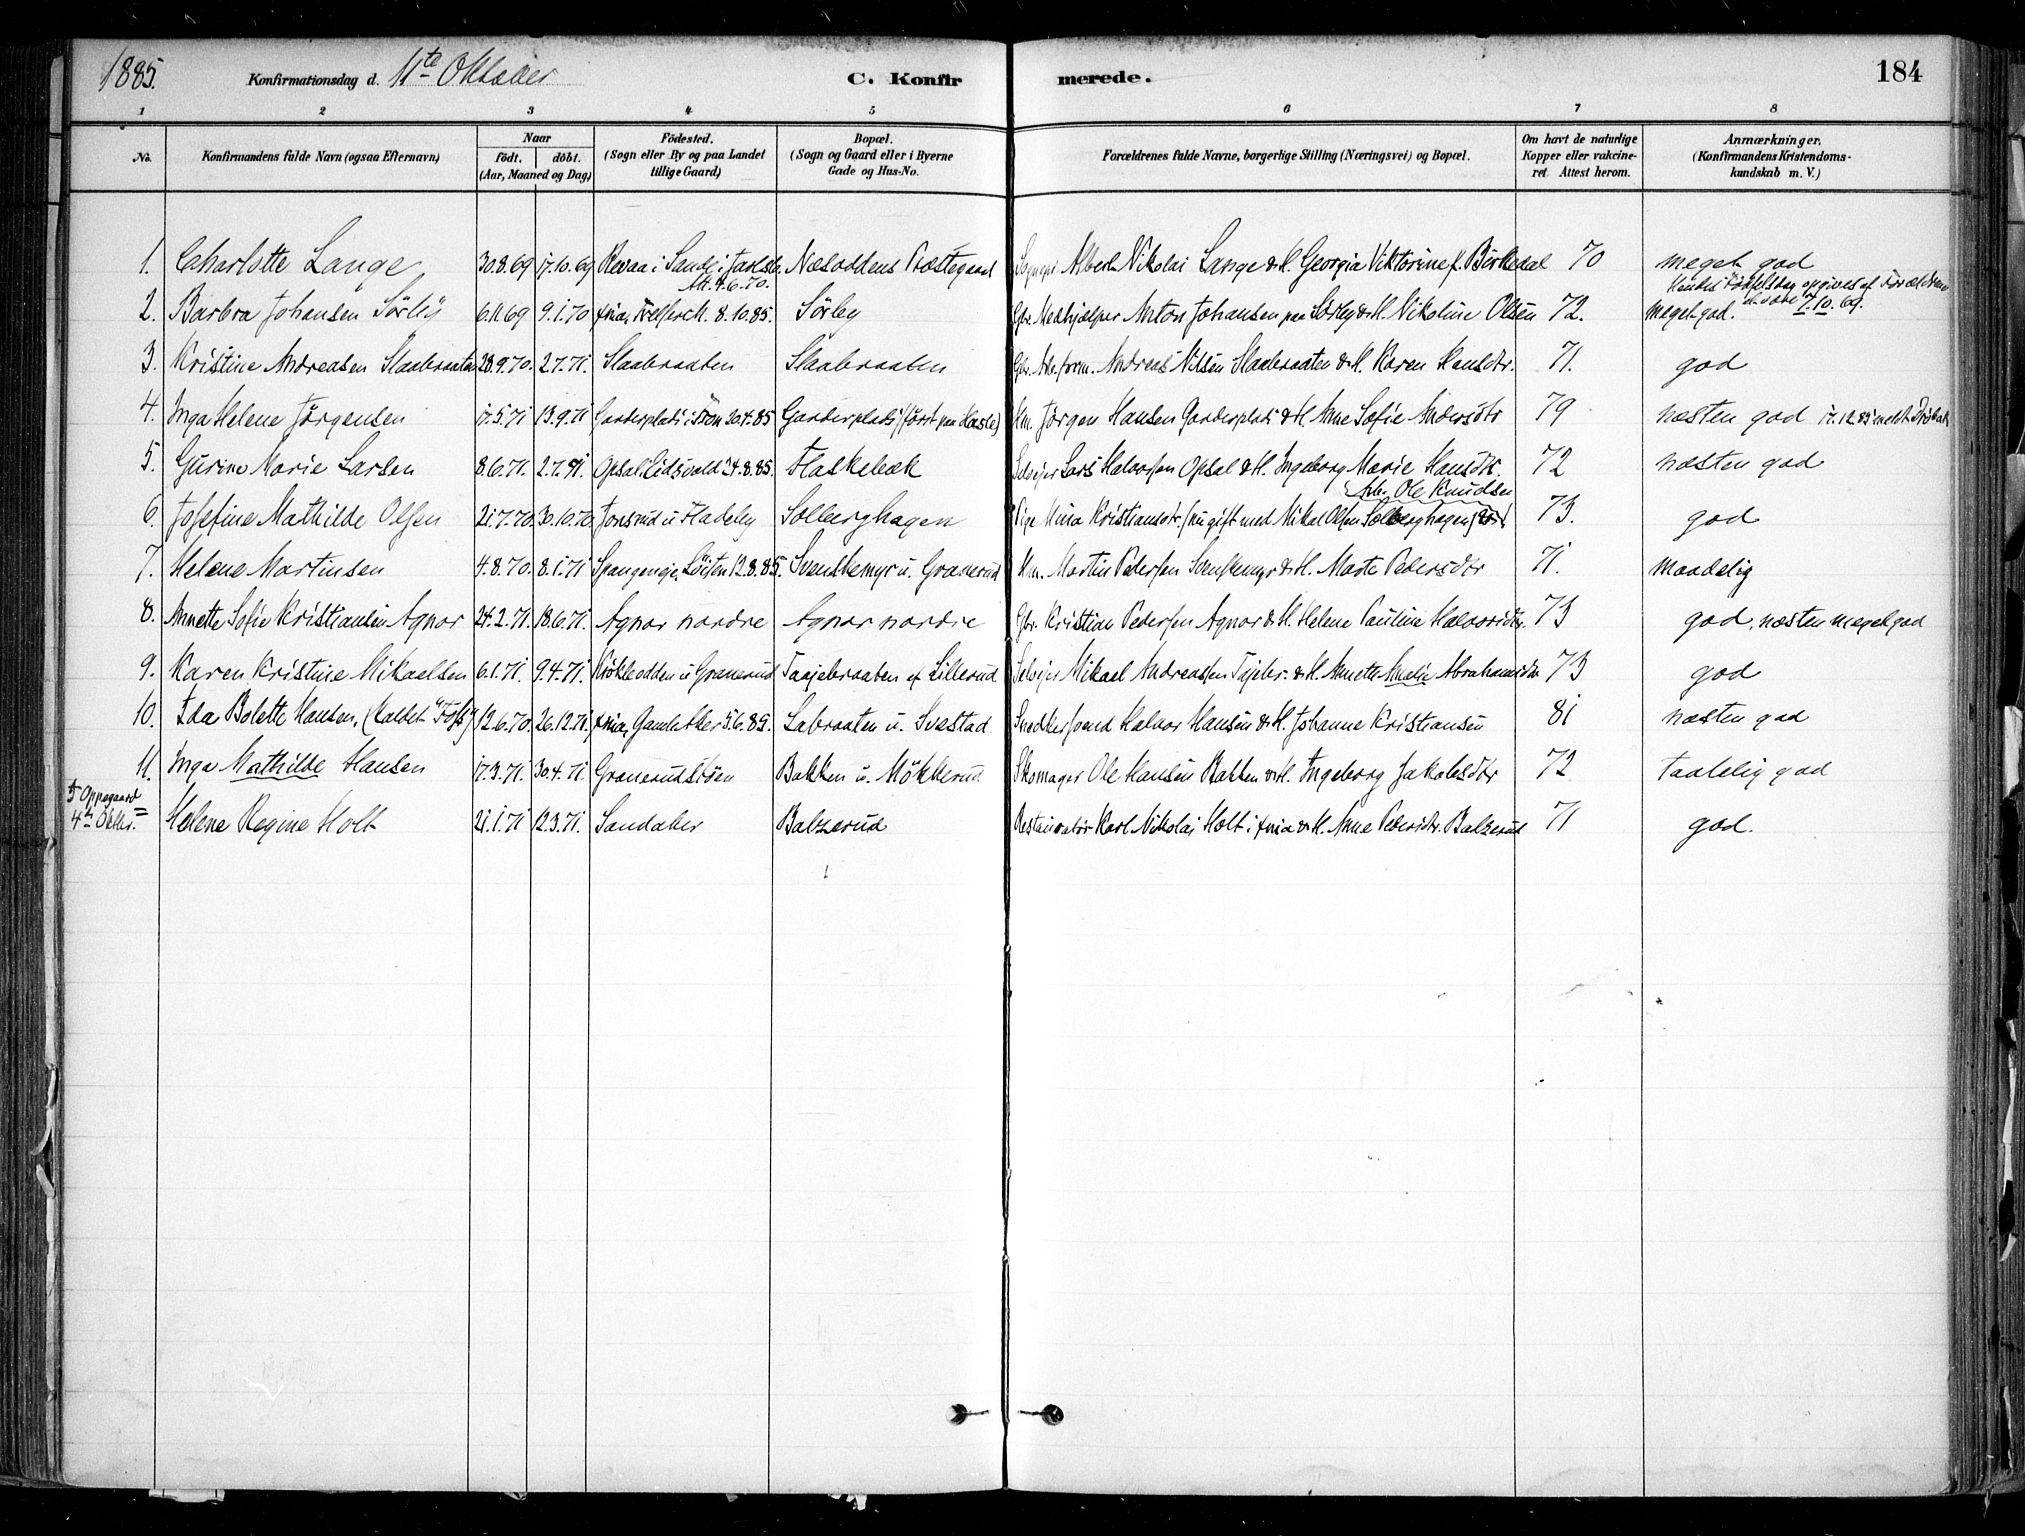 1885.
Konfirmationsdag d. 11te Oktober
C. Konfirmerede.
184
1 2 3 4 5 6 7 8
No.
Konfirmandens fulde Navn (ogsaa Efternavn)
Naar
födt. döbt.
(Aar, Maaned og Dag)
Födested.
(Sogn eller By og paa Landet
tillige Gaard)
Bopæl.
(Sogn og Gaard eller i Byerne
Gade og Hus-No.
Forældrenes fulde Navne, borgerlige Stilling (Næringsvei) og Bopæl.
Om havt de naturlige
Kopper eller vakcine-
ret Attest herom.
Anmærkninger.
(Konfirmandens Kristendoms-
kundskab m. V.)
1. Charlotte Lange 30.8.69 17.10.69 Revaa i Sande i Jarlsb. Næsoddens Præstegaard Sognepr. Albert Nikolai Lange & H. Georgia Viktorine f. Birkedal 70 meget god
Att. 4.6.70.
2. Barbra Johansen Sörby 6.11.69 9.1.70 Xnia, Trefersk. 8.10.85. Sörby Gbr. Medhjælper Anton Johansen paa Sörby & H. Nikoline Olsen 72. meget god. Hendes Födselsdag opgives af Forældrene 7.10.69.
3. Kristine Andreasen Slaabraaten 28.9.70. 2.7.71. Slaabraaten Slaabraaten Gbr. Andreas Nilsen Slaabraaten & H. Karen Hansdtr. 71. god
4. Inga Helene Jörgensen 17.5.71 13.9.71 Garderplads i 20.4.85 Garderplads (först paa Hasle) Hm. Jörgen Hansen Garderplads & H. Anne Sofie Andersdtr 79 næsten god 17.12.85 meldt Dröbak
5. Gurine Marie Larsen 8.6.71. 2.7.71. Opsal, Eidsvold 24.8.85. Flaskebæk Selveier Lars Halvorsen Opsal & H. Ingeborg Marie Hansdtr. 72 næsten god
6. Josefine Mathilde Olsen 21.7.70. 30.10.70 Jonsrud u. Fladeby Solberghagen Pige Mina Kristiansdtr. (nu gift med Mikal Olsen Solberghagen) & Arb. Ole Knudsen 73. god
7. Helene Martinsen 4.8.70. 8.1.71 Spangeneje, Löiten 12.8.85. Svenskemyr u. Granerud Hm. Martin Pedersen Svenskemyr & H. Marte Pedersdtr 71. maadelig
8. Annette Sofie Kristiansen Agnor 24.2.71. 18.6.71. Agnor nordre Agnor nordre Gbr. Kristian Pedersen Agnor & H. Helene Pauline Halvorsdtr. 73 god, næsten meget god
9. Karen Kristine Mikaelsen 6.1.71. 9.4.71. Krökleodden u. Granerud Taajebraaten af Lillerud Selveier Mikael Andreassen Tajebr. & H. Annette Amalie Abrahamsdtr 73 god
10. Ida Bolette Hansen, (kaldet "Foss") 12.6.70. 26.12.71. Xnia, Gamle Aker 5.6.85. Labraaten u. Svestad Snedkersvend Halvor Hansen & H. Johanne Kristiansen 81 næsten god
11. Inga Mathilde Hansen 17.3.71. 30.4.71. Granerudstöen Bakken u. Mökkerud Skomager Ole Hansen Bakken & H. Ingeborg Jakobsdtr 72 taalelig god
I Oppegaard
4de Oktbr. = Helene Regine Holt 21.1.71 12.3.71. Sandaker Balzerud Restauratör Karl Nikolai Holt i Xnia & H. Anne Pedersdtr. Balzerud 71 god.